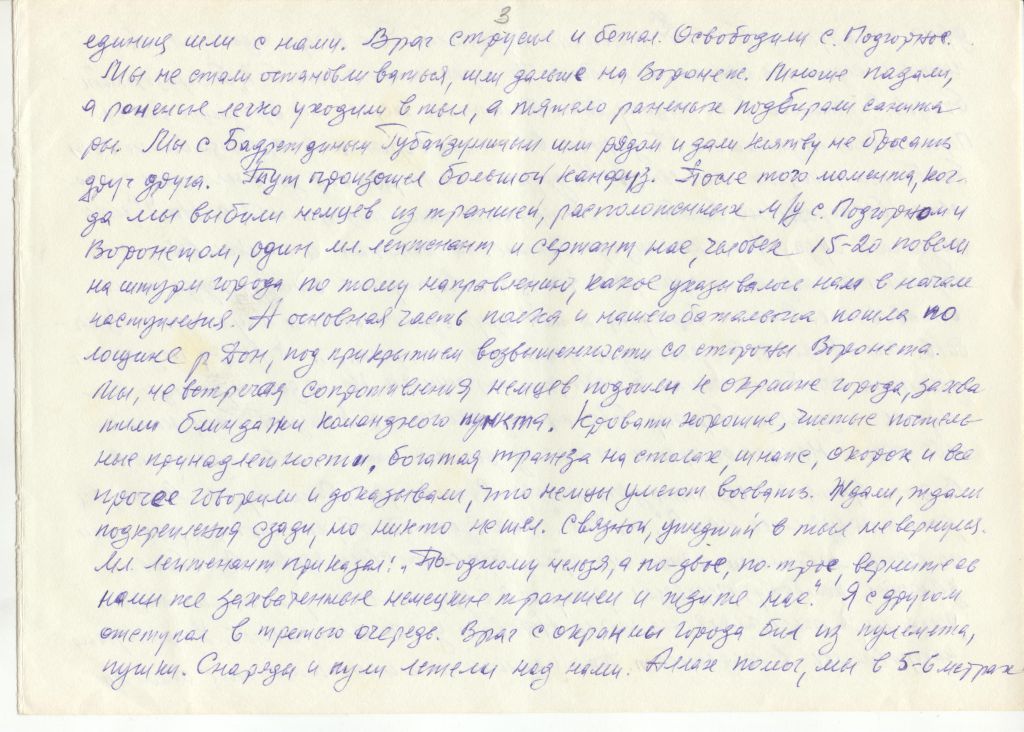 3
единиц шли с нами. Враг струсил и бежал. Освободили с. Подгорное.
Мы не стали останавливаться, шли дальше на Воронеж. Многие падали,
а раненые легко уходили в тыл, а тяжело раненых подбирали санита
ры. Мы с Бадретдиным Губайдуллиным шли рядом и дали клятву не бросать
друг друга. Тут произошел большой канфуз. После того момента, ког-
да мы выбили немцев из траншей, расположенных м/у с. Подгорном и
Воронежом, один мл. лейтенант и сержант нас, человек 15-20 повели
на штурм города по тому направлению, какое указывалось нам в начале
наступления. А основная часть полка и нашего батальона пошла по
лощине р. Дон, под прикрытием возвышенности со стороны Воронежа.
Мы, не встречая сопротивления немцев подошли к окраине города, захва
тили блиндажи командного пункта. Кровати хорошие, чистые постель
ные принадлежности, богатая трапеза на столах, шнапс, окорок и все
прочее говорили и доказывали, что немцы умеют воевать. Ждали, ждали
подкрепления сзади, но никто не шел. Связной, ушедший в тыл не вернулся.
Мл. лейтенант приказал: „По-одному нельзя, а по-двое, по-трое, вернитесь
нами же захваченные немецкие траншеи и ждите нас." Я с другом
отступал в третью очередь. Враг с окраины города бил из пулемета,
пушки. Снаряды и пули летели над нами. Аллах помог, мы в 5-6 метрах